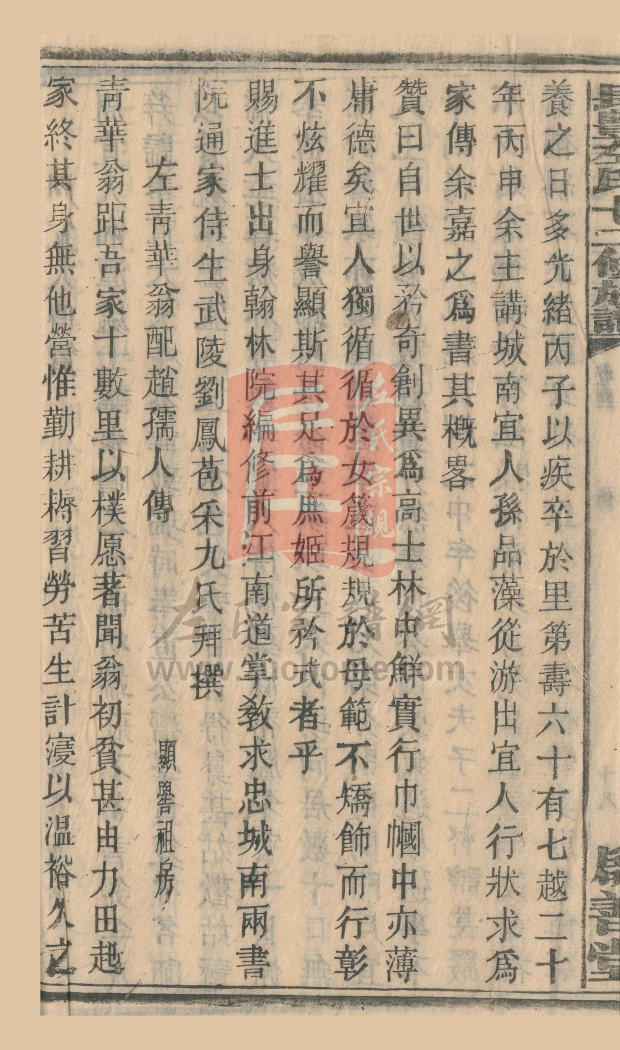 養之日多光緒丙子以疾卒於里第壽六十有七越二十
年丙申余主講城南宜人孫品藻從游出宜人行狀求爲
家傳余嘉之爲書其概畧
贊曰自世以矜奇創異爲高士林中鮮實行巾幗中亦薄
庸德矣宜人獨循循於女箴規規於母範不矯飾而行彰
不炫耀而譽顯斯其足爲庶姬所矜式者乎
賜進士出身翰林院編修前江南道掌教求忠城南兩書
院通家侍生武陵劉鳳苞采九氏拜撰
左青華翁配趙孺人傳 顯譽祖房
青華翁距吾家十數里以樸愿著聞翁初貧甚由力田起
家終其身無他營惟勤耕耨習勞苦生計寖以溫裕久之
左氏宗親